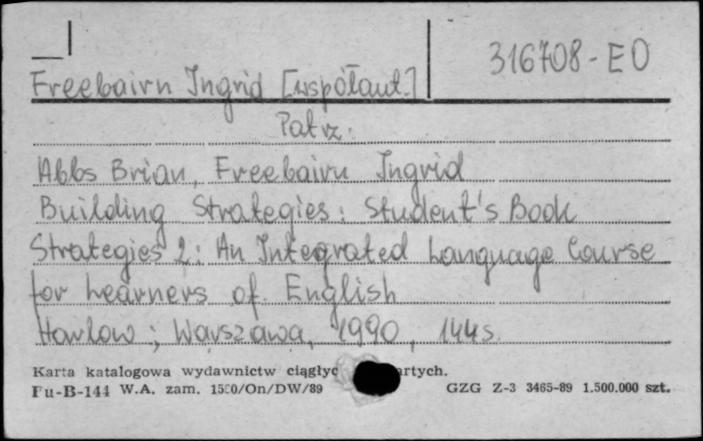 316708-EO
Freebairn Ingrid [współaut.]
Patrz.
Abbs Brian, Freebairn Ingrid
Building Strategies: Student's Book
Strategies 2: An Integrated Language Course
for Learners of English
Harlow; Warszawa, 1990, 144s.
Karta katalogowa wydawnictw ciągłyc artych.
Pu-B-144 W.A. zam. 1550/On/DW/89 GZG Z-3 3465-89 1.500.000 szt.